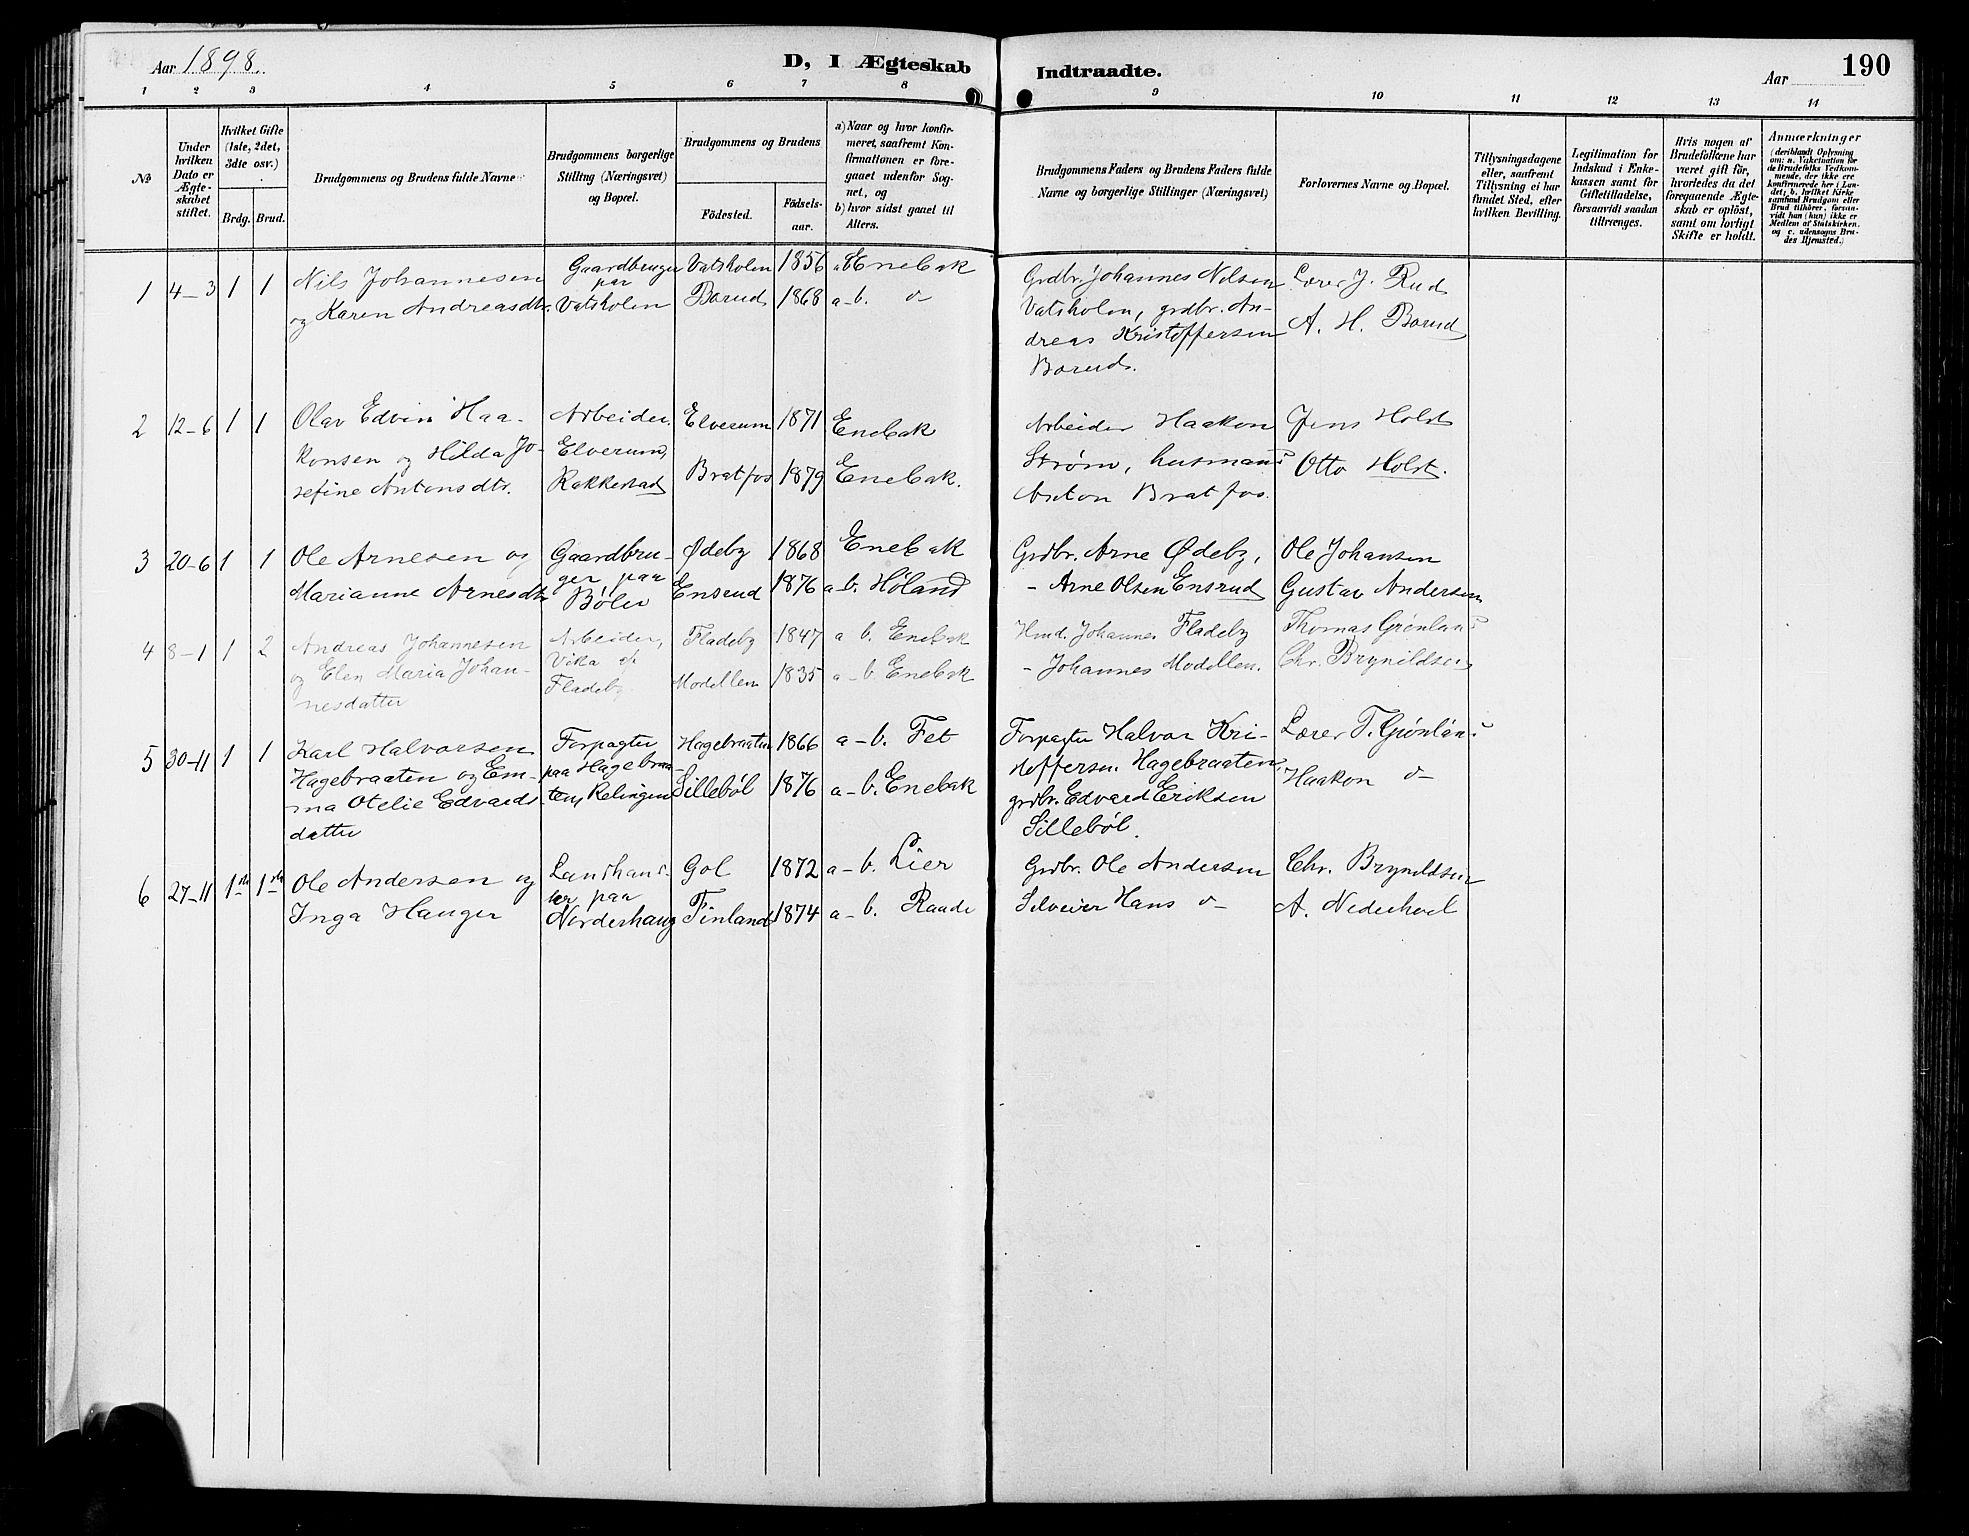 Aar 1898.
D, I Ægteskab
Indtraadte.
Aar
190
1 2 3 3 4 5 6 7 8 9 10 11 12 13 14
№
Under
hvilken
Dato er
Ægte-
skabet
stiftet.
Hvilket Gifte
(1ste, 2det,
3die osv.)
Brdg. Brud.
Brudgommens og Brudens fulde Navne
Brudgommens borgerlige
Stilling (Næringsvei)
og Bopæl.
Brudgommens og Brudens
Födested.
Födsels-
aar.
a) Naar og hvor konfir-
meret, saafremt Kon-
firmationen er fore-
gaaet udenför Sog-
net, og
b) hvor sidst gaaet til
Alters.
Brudgommens Faders og Brudens Faders fulde
Navne og borgerlige Stillinger (Næringsvei)
Forlovernes Navne og Bopæl.
Tillysningsdagene
eller, saafremt
Tillysning ei har
fundet Sted, efter
hvilken Bevilling.
Legitimation for
Indskud i Enke-
kassen samt for
Giftetilladelse,
forsaavidt saadan
tiltrænges.
Hvis nogen af
Brudefolkene har
været gift för,
hvorledes da det
foregaaende Ægte-
skab er oplöst,
samt om lovligt
Skifte er holdt.
Anmærkninger
(deriblandt Oplysning
om: a. Vakcination for
de Brudefolks Vedkom-
mende, der ikke ere
konfirmerede her i Lan-
det; b. hvilket Kirke-
samfund Brudgom eller
Brud tilhörer, forsaa-
vidt han (hun) ikke er
Medlem af Statskirken,
og c. udensogns Bru-
des Hjemsted.)
1 4-3 1 1
Nils Johannesen
og Karen Andreasdtr.
Gaardbruger
paa
Vatsholen
Vatsholen 1856
Borud 1868
a-b Enebak
a-b. o-
Grdbr. Johannes Nilsen
Vatsholen, grdbr. An-
dreas Kristoffersen
Borud.
Lærer J. Rud
A. H. Borud
2 12-6 1 1
Olav Edvin Haa-
konsen og Hilda Jo-
sefine Antonsdtr.
Arbeider,
Elverum,
Rakkestad
Elverum 1871
Bratfos 1879
Enebak
Enebak.
Arbeider Haakon
Strøm, husmand
Anton Bratfos.
Jens Holst
Otto Holst.
3 20-6 1 1
Ole Arnesen og
Marianne Arnesdtr
Gaardbru-
ger paa
Bøler
Ødeby 1868
Ensrud 1876
Enebak
a-b. Høland
Grdbr. Arne Ødeby,
- Arne Olsen Ensrud
Ole Johansen
Gustav Andersen
4 8-1 1 2
Andreas Johannesen
og Elen Maria Johan-
nesdatter
Arbeider,
Vika u/
Fladeby
Fladeby 1847
Modellen 1835
a b. Enebak
a-b. Enebak
Hmd. Johannes Fladeby
- Johannes Modellen.
Thomas Grønland
Chr. Brynildsen
5 30-11 1 1
Karl Halvorsen
Hagebraaten og Em-
ma Otelie Edvards
datter
Forpagter
paa Hagebraa-
ten, Relingen
Hagebraaten 1866
Sillebøl 1876
a-b. Fet
a-b. Enebak
Forpagter Halvor Kri-
stoffersen Hagebraaten,
grdbr. Edvard Eriksen
Sillebøl.
Lærer T. Grønland
Haakon o-
6 27-11 1ste 1ste
Ole Andersen og
Inga Hauger
Landhand-
ler paa
Norderhaug
Gol 1872
Finland 1874
a-b. Lier
a-b. Raade
Grdbr. Ole Andersen
Hans o-
Chr. Brynildsen
A. Nederhoel